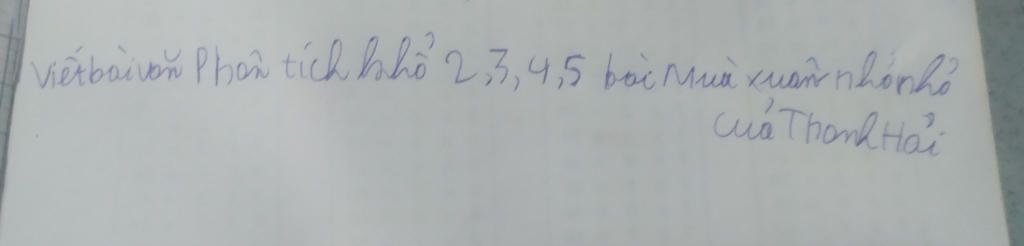 Viết bài văn Phân tích khổ 2,3,4,5 bài Mùa xuân nho nhỏ
của Thanh Hải